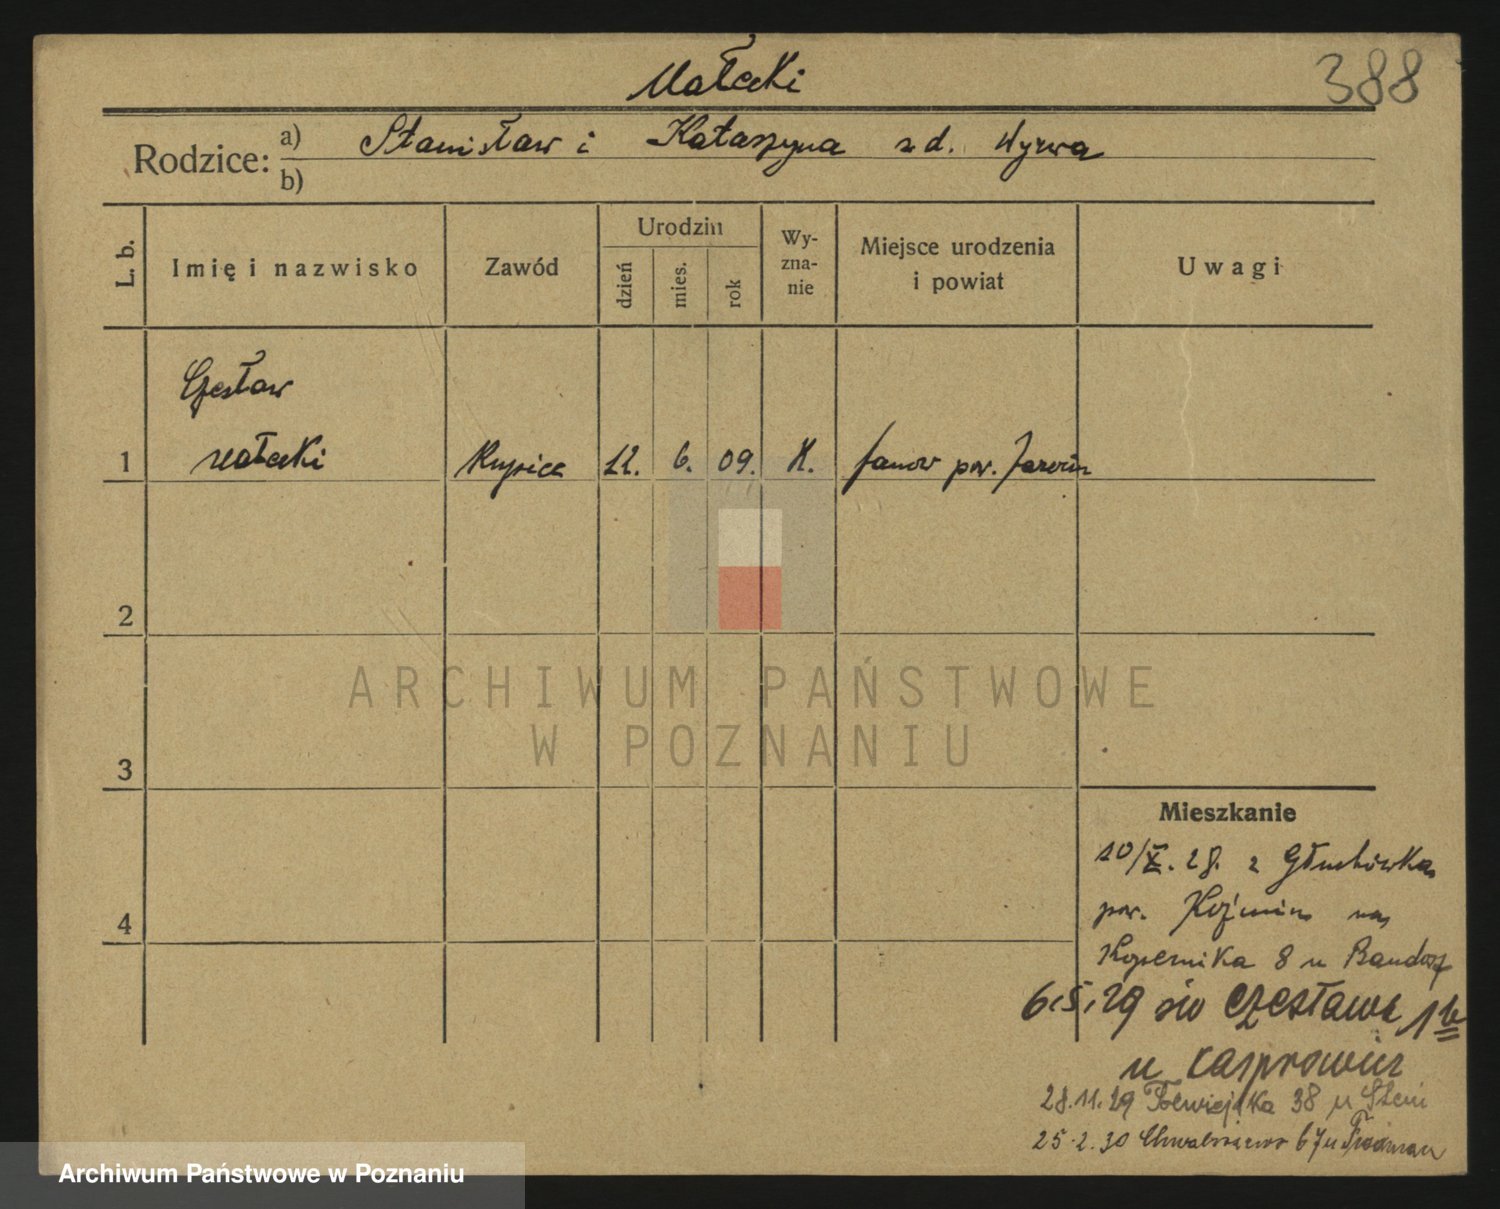 Małecki
388
Rodzice: a) Stanisław i Katarzyna z d. Wyrwa
b)
L. b.
Imię i nazwisko
Zawód
Urodzin
dzień
mies.
rok
Wy-
zna-
nie
Miejsce urodzenia
i powiat
Uwagi
Czesław
1 Małecki Kupiec 12. 6. 09. K. Janów pow. Jarocin
2
3
4
ARCHIWUM PAŃSTWOWE
W POZNANIU
Mieszkanie
10/X. 28. z Głuchówka
pow. Koźmin na
Kopernika 8 u Bandosz
6.5.29 św Czesława 1b
u Kasprowicz
28.11.29 Półwiejska 38 u
25.2.30 Chwaliszewo 67 u
Archiwum Państwowe w Poznaniu